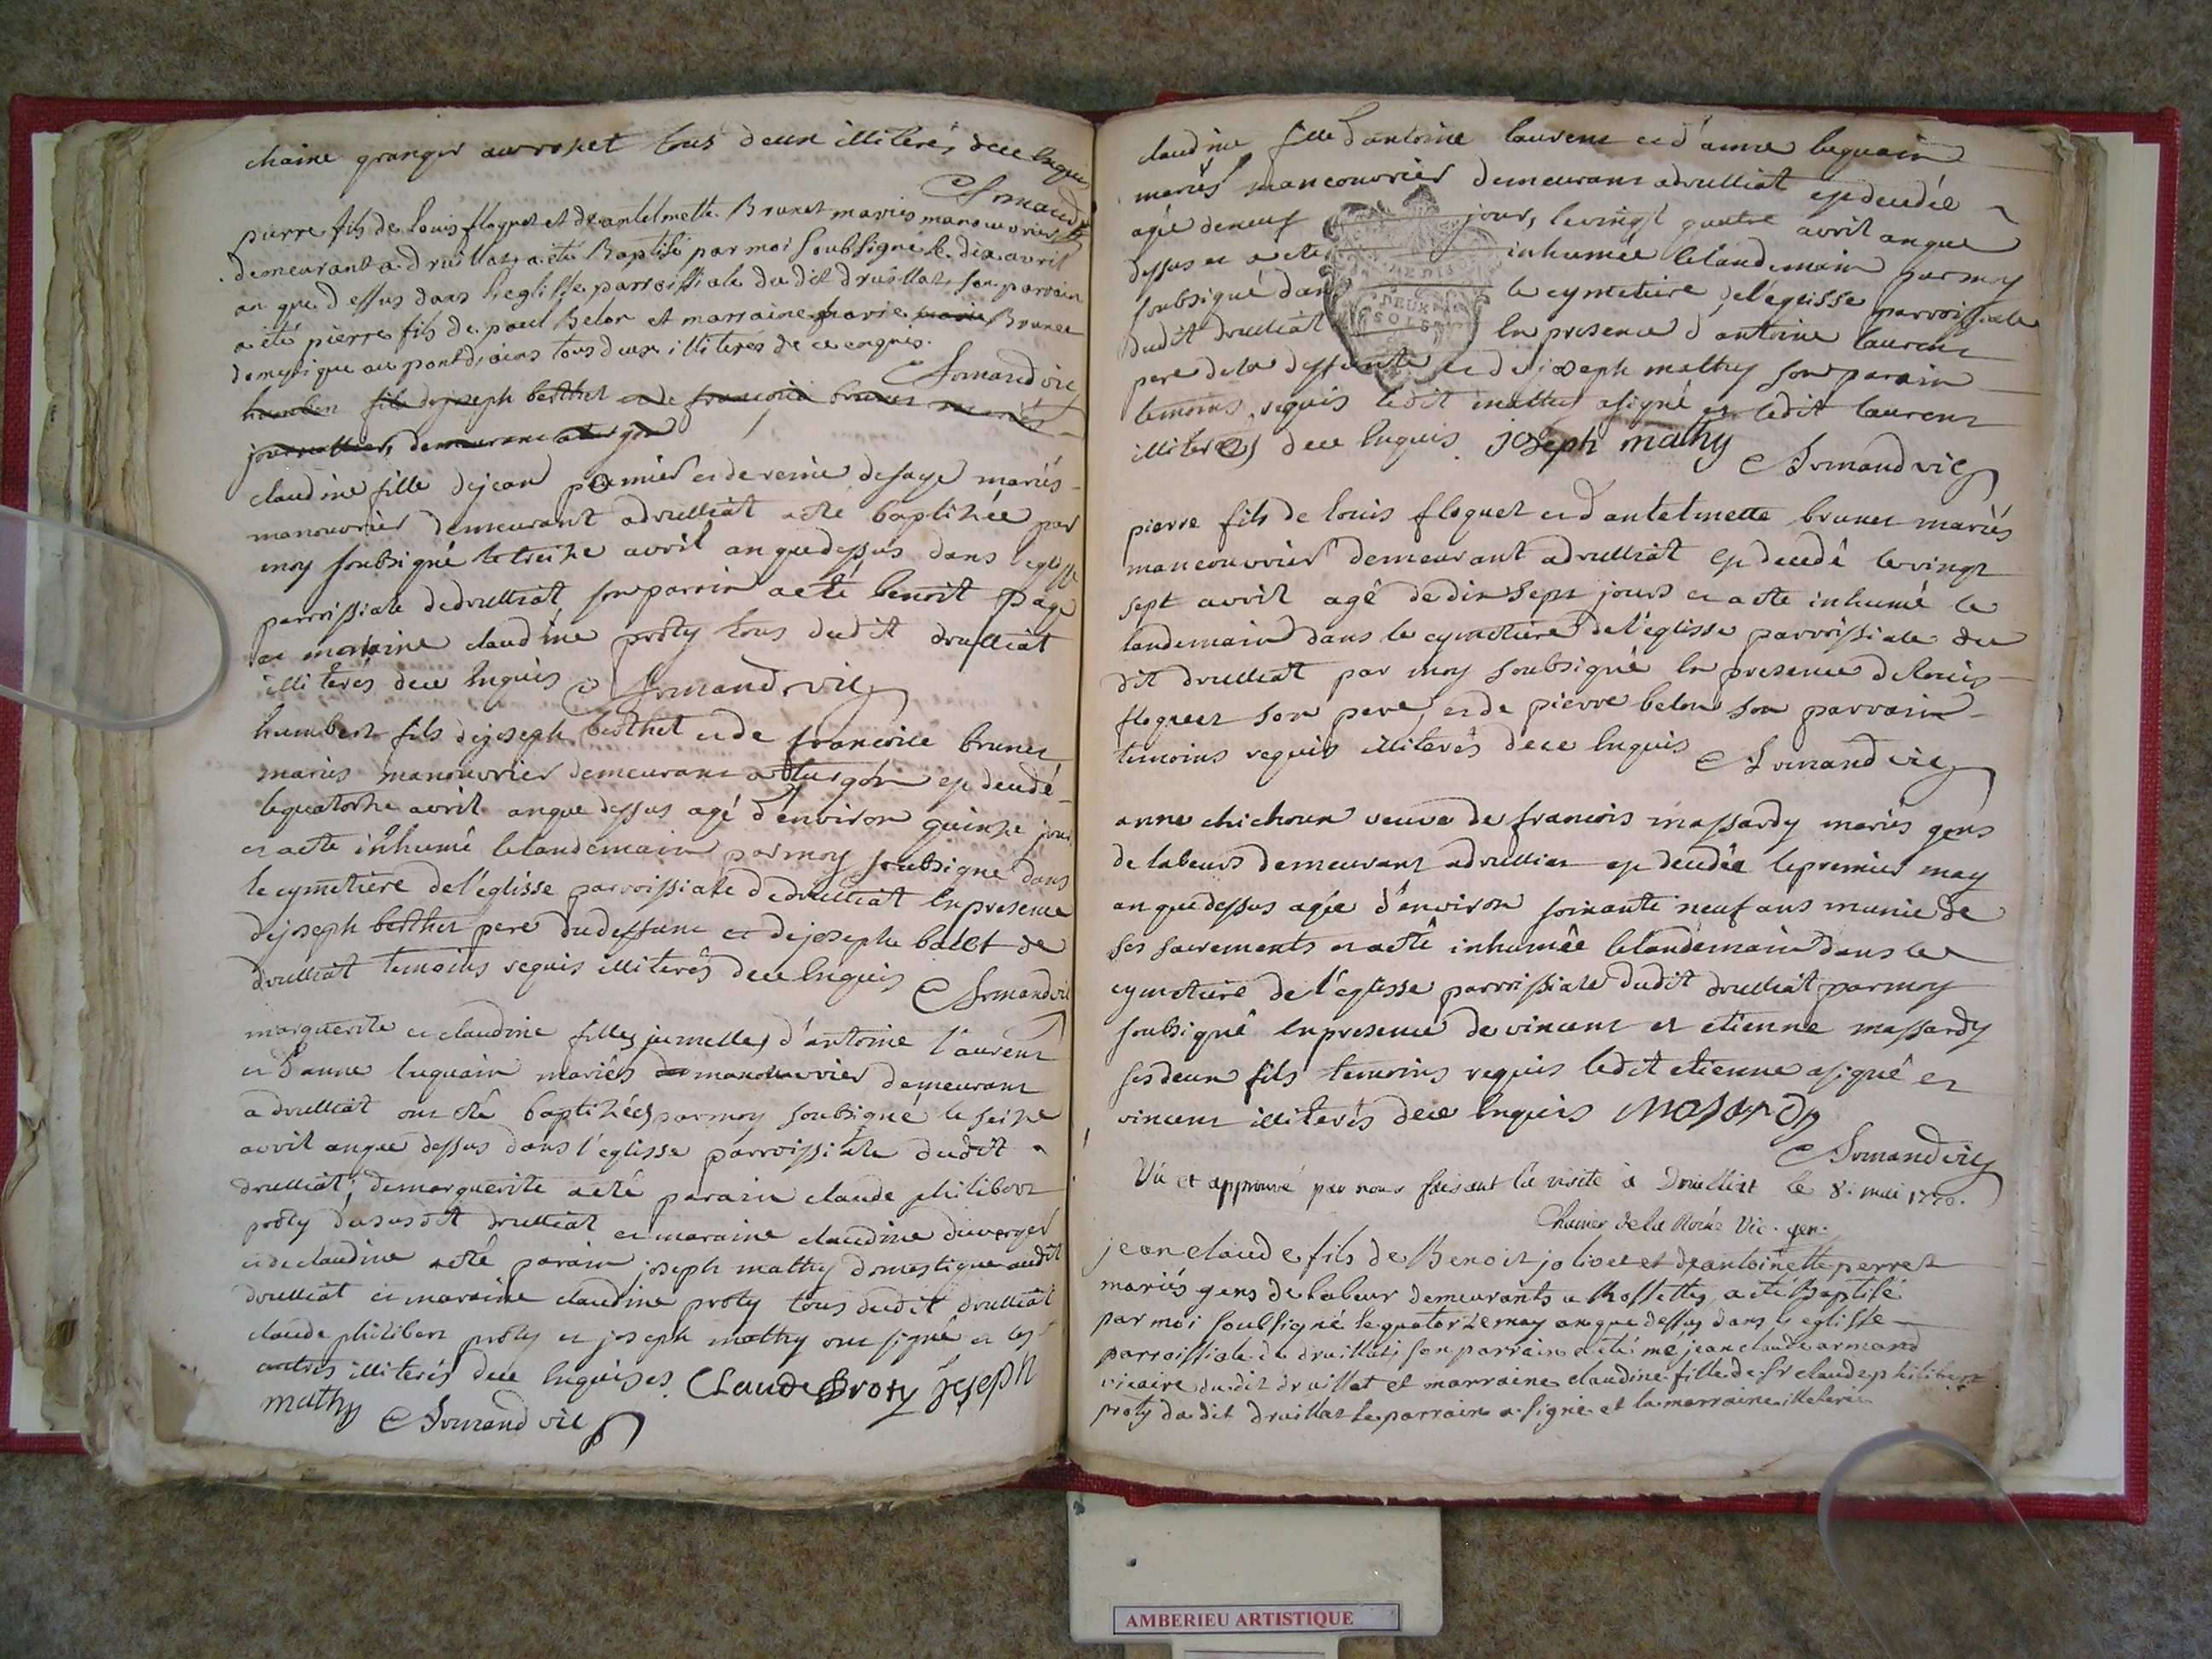 chaine granger au roset tous deux illiterés de ce enquis
Armand vic
pierre fils de louis floquet et de antelmette Brunet mariés manouvriers
demeurant a druillat a été Baptisé par moi soubsigné le dix avril
an que dessus dans l'eglisse parroissiale du dit druillat, son parrain
a été pierre fils de paul Belon et marraine marie Brunet
domestique au pont d'ains tous deux illiterés de ce enquis.
Armand vic
humber fils de joseph berthet et de francoise brunet mariés
journallier, demeurant a turgon
claudine fille de jean premier et de reine desaye mariés
manouvrier demeurant a drulliat a eté baptizée par
moy soubsigné le treize avril an que dessus dans l'eglisse
parroissiale de drulliat, son parrin a eté benoit page
et maraine claudine proty tous dudit drulliat
illiterés de ce enquis Armand vic
humbert fils de joseph berthet et de francoise brunet
mariés manouvrier demeurant a turgon est decedé
le quatorze avril an que dessus agé d'environ quinze jour
et a eté inhumé le landemain par moy soubsigné dans
le cymetiere de l'eglisse parroissiale de drulliat en presence
de joseph berthet pere du deffunt et de joseph balet de
drulliat temoins requis illiterés de ce enquis Armand vic
marguerite et claudine filles jumelles d'antoine laurent
et d'anne luquain mariés manouvrier demeurant
a drulliat ont eté baptizées par moy soubsigné le seize
avril an que dessus dans l'eglisse parroissiale dudit
drulliat, de marguerite a eté parain claude philibert
proty du susdit drulliat et maraine claudine duverger
et de claudine a eté parain joseph mathy domestique audit
drulliat et maraine claudine proty tous dudit drulliat
claude philibert proty et joseph mathy ont signé et les
autres illiterés de ce enquises. Claude Broty joseph
mathy Armand vic
claudine fille d'antoine laurent et d'anne luquain
mariés manouvrier demeurant a drulliat est decedée
agée de neuf jour, le vingt quatre avril an que
dessus et a eté inhumée le landemain par moy
soubsigné dans le cymetiere de l'eglisse parroissiale
dudit drulliat en presence d'antoine laurent
pere de la deffunte et de joseph mathy son parain
temoins requis ledit mathy a signé et ledit laurent
illiterés de ce enquis. joseph mathy Armand vic
DEUX
SOLS
pierre fils de louis floquet et d'antelmette brunet mariés
manouvrier demeurant a drulliat est decedé le vingt
sept avril agé de dix sept jours et a eté inhumé le
landemain dans le cymetiere de l'eglisse parroissiale du
dit drulliat par moy soubsigné en presence de louis
floquet son pere, et de pierre belon son parrain
temoins requis illiterés de ce enquis Armand vic
anne chichoux veuve de francois massardy mariés gens
de labeurs demeurant a drulliat est decedée le premier may
an que dessus agée d'environ soixante neuf ans munie de
ses sacrements et a eté inhumée le landemain dans le
cymetiere de l'eglisse parroissiale dudit drulliat par moy
soubsigné en presence de vincent et etienne massardy
ses deux fils temoins requis ledit etienne a signé et
vincent illiterés de ce enquis MASARDY
Armand vic
Vu et approuvé par nous faisant la visite à Druillat le 8. mai 1770.
de la Roche Vic. gen.
jean claude fils de Benoit jolivet et de antoinette perret
mariés gens de labeur demeurants a Rossettes, a été Baptisé
par moi soubsigné le quatorze may an que dessus dans l'eglisse
parroissiale de druillat, son parrain a été mre jean claude armand
vicaire du dit druillat et marraine claudine fille de sr claude philibert
proty du dit druillat le parrain a signé et la marraine illeterée
AMBERIEU ARTISTIQUE